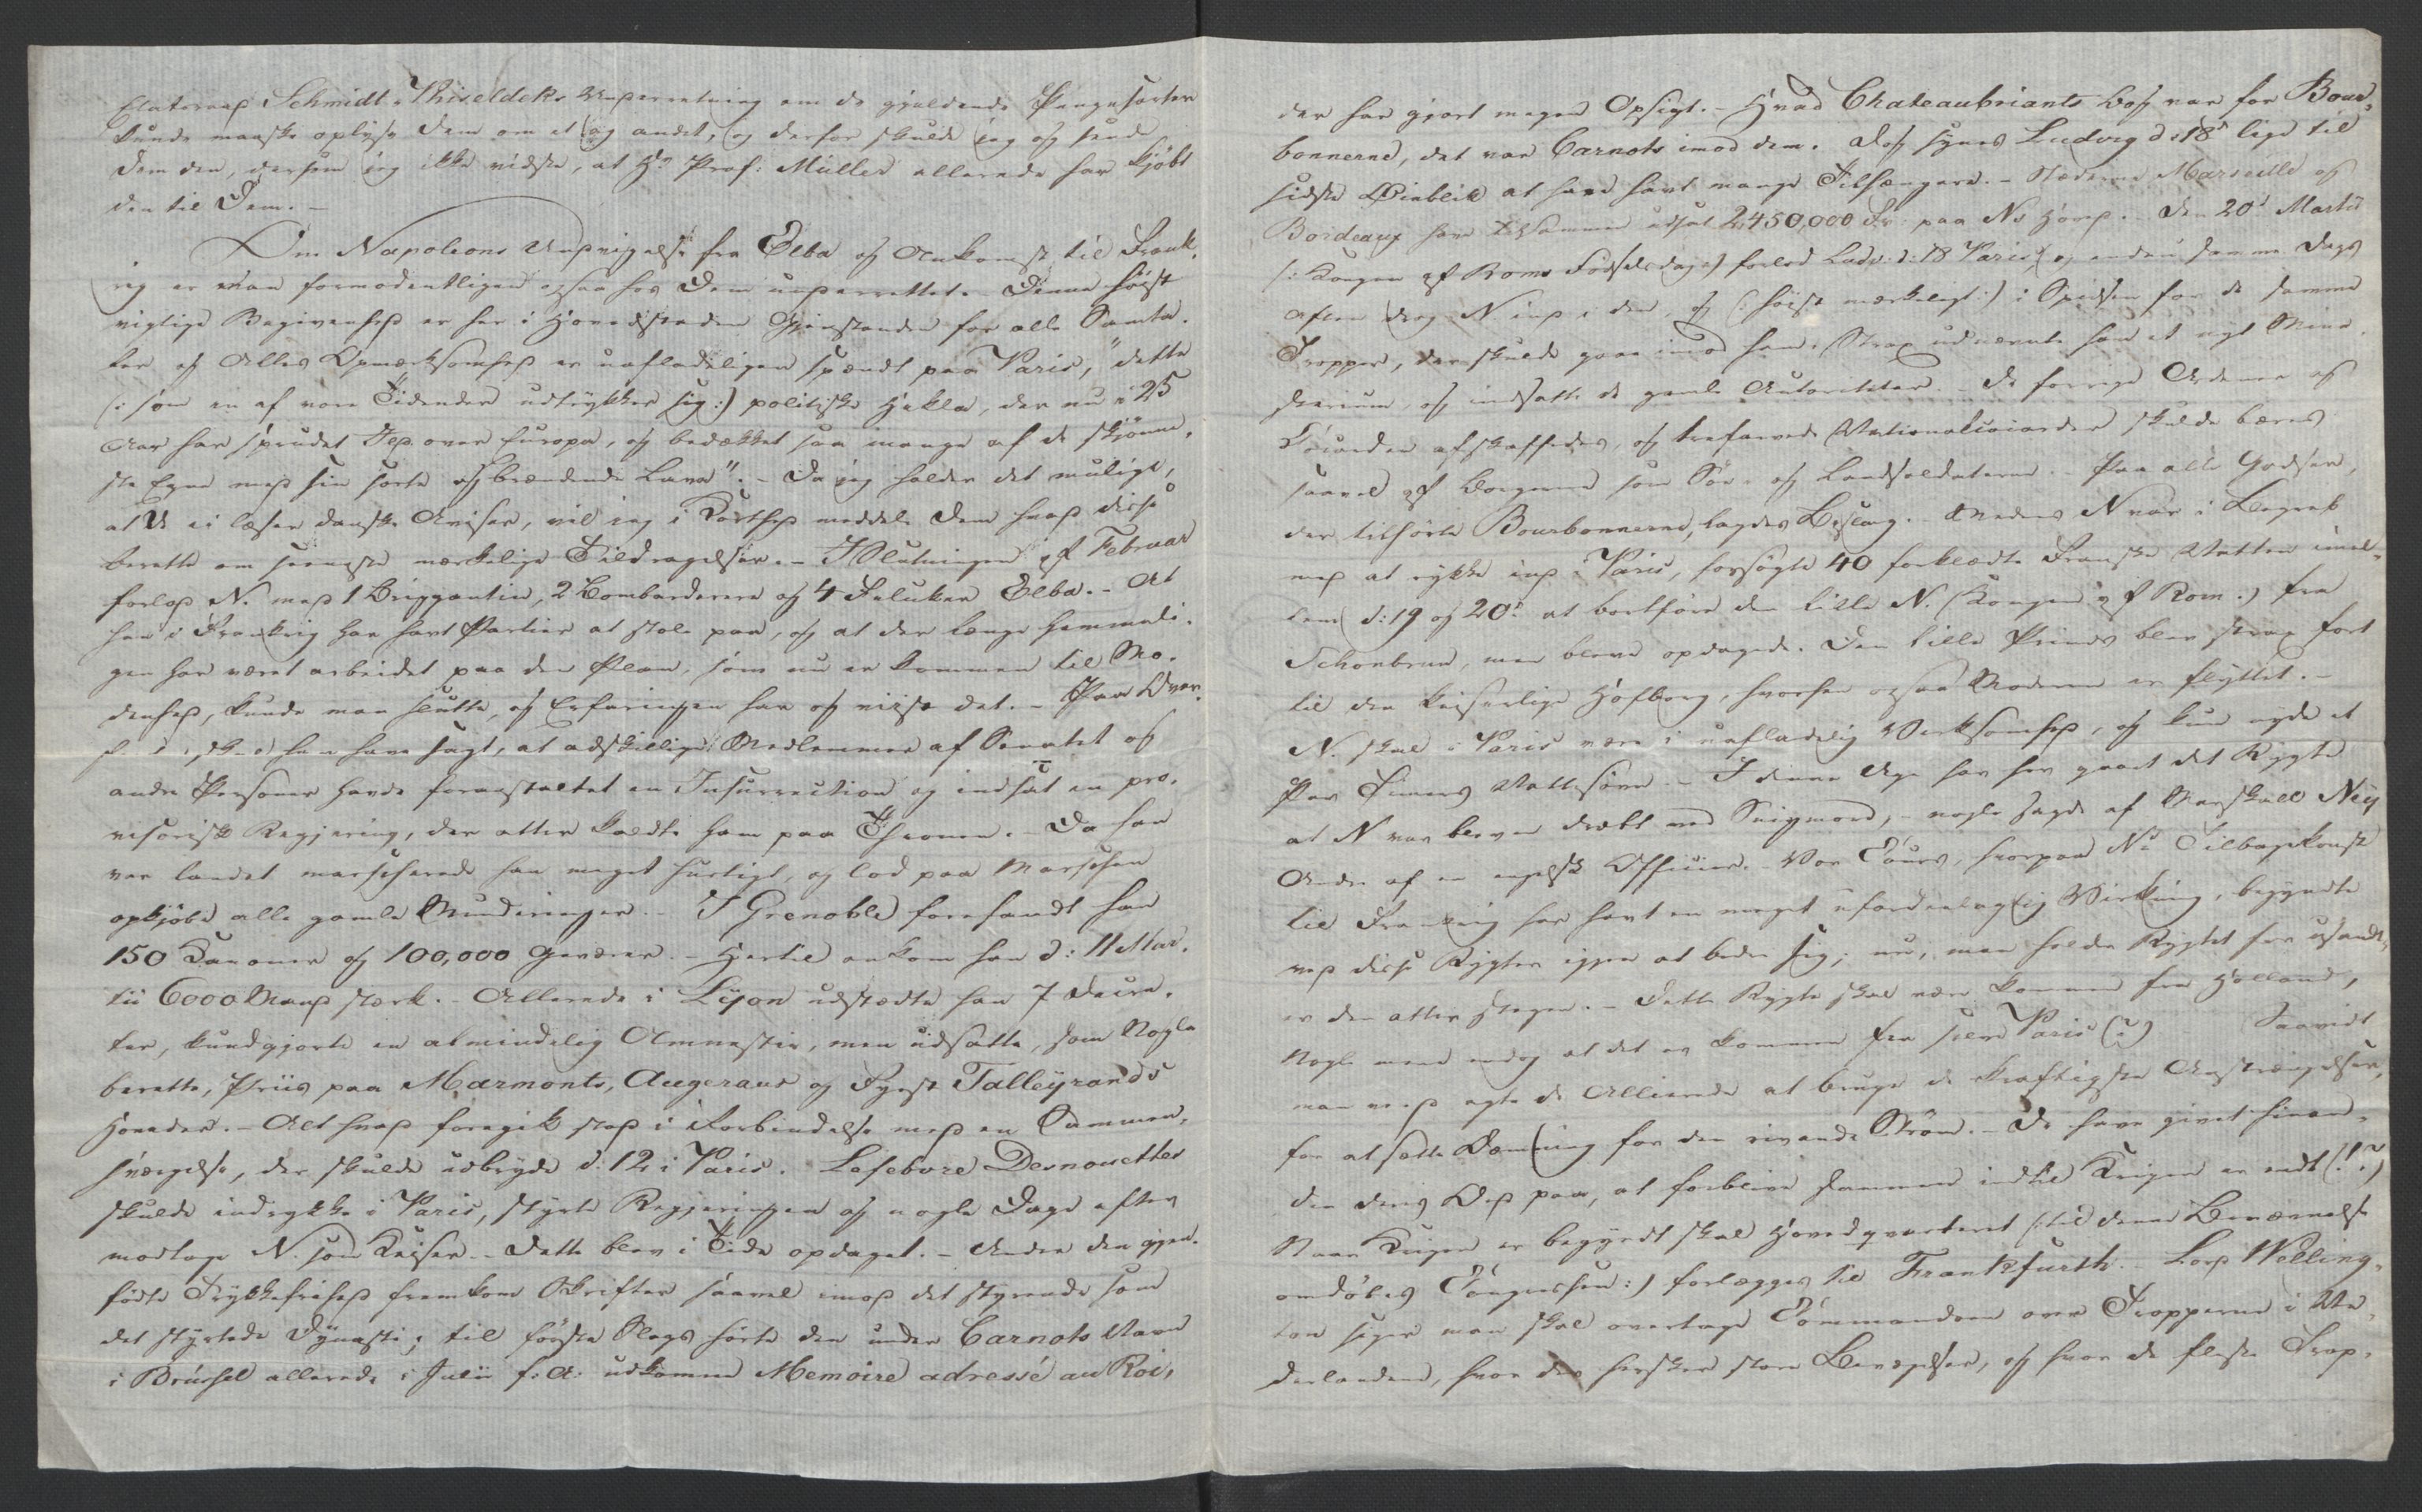 Etatsraad Schmidt-Phiseldeks Underretning om de gjældende Pengesorter
kunde maaske oplyse Dem om et og andet, og derfor skulde jeg og sende
Dem den, dersom jeg ikke vidste, at Hr Prof: Müller allerede har kjöbt
den til Dem. –
Om Napoleons Undvigelse fra Elba og Ankomst til Frank-
rig er man formodentligen ogsaa hos Dem underrettet. – Denne höist
vigtige Begivenhed er her i Hovedstaden Gjenstanden for alle Samta-
ler og Alles Opmærksomhed er uafladeligen spændt paa Paris, "dette
(: som en af vore Tidender udtrykker sig :) politiske Hekla, der nu i 25
Aar har sprudet Ild over Europa, og bedækket saa mange af de skjönne-
ste Egne med sin sorte og brændende Lava". – Da jeg holder det muligt,
at De ei læser danske Aviser, vil jeg i Korthed meddele Dem hvad disse
berette om seneste mærkelige Tildragelser. – I Slutningen af Februar
forlod N. med 1 Briggantin, 2 Bombarderere og 4 Felukker Elba. – At
han i Frankrig har havt Partier at stole paa, og at der længe hemmeli-
gen har været arbeidet paa den Plan, som nu er kommen til Mo-
denhed, kunde man slutte, og Erfaringen har og viist det. – Paa
skal han have sagt, at adskillige Medlemmer af Senatet og
andre Personer havde foranstaltet en Insurrection og indsat en pro-
visorisk Regjering, der atter kaldte ham paa Thronen. – Da han
var landet marscherede han meget hurtigt, og lod paa Marschen
opkjöbe alle gamle Munderinger. – I Grenoble forefandt han
150 Kanoner og 100,000 Geværer. – Hertil ankom han d: 11 Mar-
tii 6000 Mand stærk. – Allerede i Lyon udstædte han 7 Decre-
ter, kundgjorde en almindelig Amnestie, men udsatte, som Nogle
berette, Priis paa Marmonts, Augeraus og Fyrst Talleyrands
Hoveder. – Alt hvad foregik stod i Forbindelse med en Sammen-
sværgelse, der skulde udbryde d: 12 i Paris. Lefebvre Desnouettes
skulde indrykke i Paris, styrte Regjeringen og nogle Dage efter
modtage N. som Keiser. – Dette blev i Tide opdaget. – Under den gjen-
födte Trykkefrihed fremkom Skrifter saavel imod det styrende som
det styrtede Dynasti; til förste Slags hörte den under Carnots Navn
i Brüssel allerede i Julii f: A: udkomne Memoire adressé au Roi,
der har gjort megen Opsigt. – Hvad Chateaubriants Bog var for Bour-
bonnerne, det var Carnots imod dem. Dog synes Ludvig d: 18d lige til
sidste Öieblik at have havt mange Tilhængere. – Stæderne Marseille og
Bordeaux have tilsammen udsat 2,450,000 Fr. paa Ns Hoved. – Den 20d Martii
(: Kongen af Roms Födselsdag :) forlod Ludv: d: 18 Paris, og endnu samme Dags
Aften drog N. ind i den, og (: höist mærkeligt :) i Spidsen for de samme
Tropper, der skulde gaae imod ham. Strax udnævnte han et nyt Mini-
sterium, og indsatte de gamle Autoriteter. – De forrige Ordener og
Cocarder afskaffedes, og trefarvede Nationalcocarder skulde bæres
saavel af Borgerne som Söe- og Landsoldaterne. – Paa alle Godser,
der tilhörte Bourbonnerne, lagdes Beslag. – Medens N var i Begreb
med at rykke ind i Paris, forsögte 40 forklædte Franske Natten imel-
lem d: 19 og 20d at bortföre den lille N. (Kongen af Rom:) fra
Schonbrun, men bleve opdagede. Den lille Prinds blev strax fört
til den keiserlige Hofborg, hvorhen ogsaa Moderen er flyttet. –
N. skal i Paris være i uafladelig Virksomhed, og kun nyde et
Par Timers Nattesövn. – I denne Uge har her gaaet det Rygte
at N var bleven dræbt ved Snigmord, – nogle sagde af Marskall Ney
Andre af en engelsk Officier. – Vor Cours, hvorpaa Ns Tilbagekomst
til Frankrig har havt en meget ufordeelagtig Virkning, begyndte
ved disse Rygter igjen at bedre sig; nu, man holder Rygtet for usandt,
er den atter stegen. – Dette Rygte skal være kommen fra Holland,
Nogle mene endog at det er kommen fra selve Paris (?) Saavidt
man veed agte de Allierede at bruge de kraftigste Anstrængelser,
for at sætte Dæmning for den rivende Ström. – De have givet hinan-
den deres Ord paa, at forblive sammen indtil Krigen er endt (!?)
Naar Krigen er begyndt skal Hovedqvarteret (: til denne Benævnelse
omdöbes Congressen :) forlægges til Frankfurth. – Lord Welling-
ton siger man skal overtage Commandoen over Tropperne i Ne-
derlandene, hvor der hersker store Bevægelser, og hvor de fleste Trop-